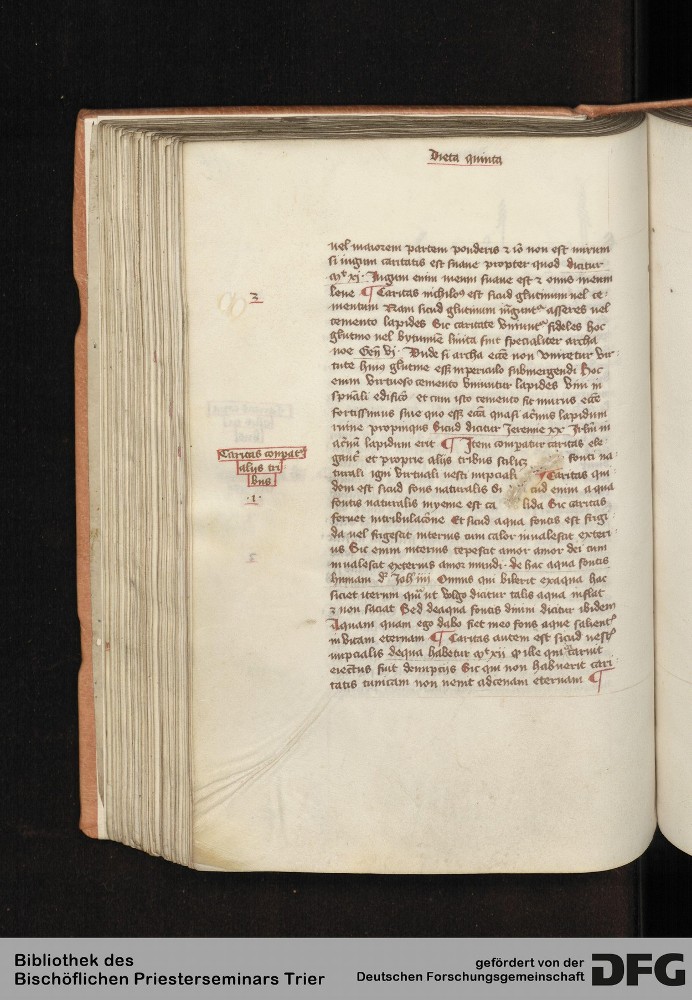 Dieta quinta
uel maiorem partem ponderis et io non est mirum
si iugum caritatis est suaue propter quod dicitur
mt xj. Iugum enim meum suaue est et onus meum
leue ¶ Caritas est sicud glutinum uel ce-
mentum Nam sicud glutinum asseres uel
cemento lapides Sic caritate fideles hoc
glutino uel bytumine linita fuit specialiter archa
noe Gen vj. Unde si archa non vniretur vir-
tute huius glutine in periculo submergendi Hoc
enim virtuoso cemento vniuntur lapides viui in
spuali edificio et cum isto cemento fit murus
fortissimus siue quo quasi acruus lapidum
ruine propinquus Sicud dicitur Jeremie xx
aceruum lapidum erit ¶ Item comparatur caritas ele-
et proprie alijs tribus scilic fonti na-
turali igni virtuali uesti nupciali ¶ Caritas qui-
dem est sicud fons naturalis si cud enim aqua
fontis naturalis in yeme est ca lida Sic caritas
feruet in tribulacone Et sicud aqua fontis est frigi
da uel frigescit interius cum calor inualescit exteri
us Sic enim interius tepescit amor amor dei cum
inualescit exterius amor mundi. de hac aqua fontis
humani d Joh iiij Omnis qui biberit ex aqua hac
siciet iterum quia ut volgo dicitur talis aqua inflat
et non saciat Sed de aqua fontis diuini dicitur ibidem
Aquam quam ego dabo fiet in eo fons aque salient
in vitam eternam ¶ Caritas autem est sicud uest
nupcialis de qua habetur mt xxij ille qui caruit
eiectus fuit de nupcijs Sic qui non habuerit cari
tatis tunicam non uenit ad cenam eternam ¶
3
Caritas compat
alijs tri
bus
.1.
Bibliothek des
Bischöflichen Priesterseminars Trier
gefördert von der
Deutschen Forschungsgemeinschaft
DFG